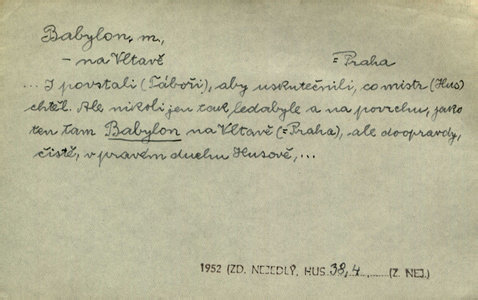 Babylon, m.,
- na Vltavě = Praha
... I povstali (Táboři), aby uskutečnili, co mistr (Hus)
chtěl. Ale nikoli jen tak, ledabyle a na povrchu, jako
ten tam Babylon na Vltavě (= Praha), ale doopravdy,
čistě, v pravém duchu Husově, ...
1952 (ZD. NEJEDLÝ, HUS 38,4 .......... (Z. NEJ.)